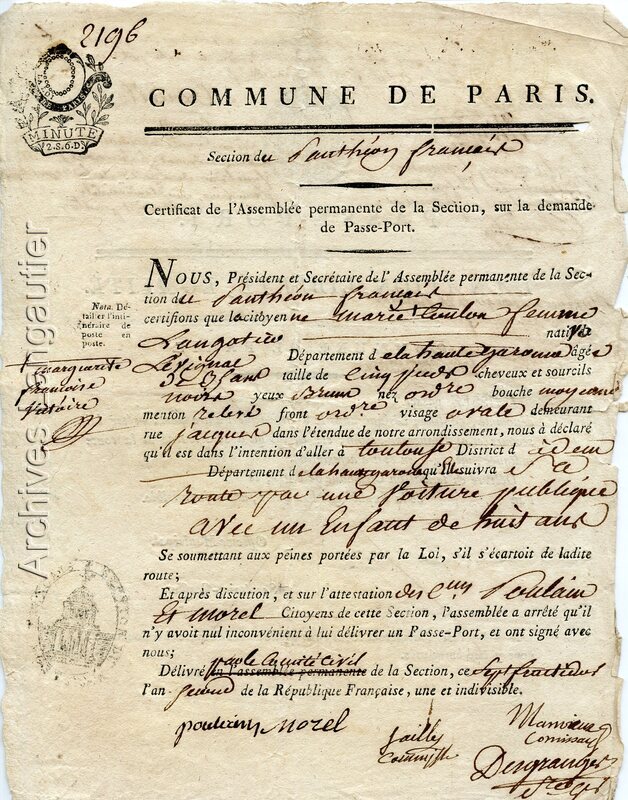 2196
LA LOI
MINUTE
2. S. 6. D.
COMMUNE DE PARIS.
Section du Panthéon français
Certificat de l'Assemblée permanente de la Section, sur la demande
de Passe-Port.
Nous, Président et Secrétaire de l'Assemblée permanente de la Sec-
tion du Panthéon français
certifions que la citoyenne marie Toulon femme
Langotier native
Nota. Dé-
tailler l'iti-
néraire de
poste en
poste.
marguerite
francoise
victoire
de Levignac Département de la haute garonne âgée
de ans taille de Cinq pieds cheveux et sourcils
noirs yeux Brum nez ordre bouche moyenne
menton relevé front ordre visage ovale demeurant
rue jacques dans l'étendue de notre arrondissement, nous a déclaré
qu'il est dans l'intention d'aller à toulouse District d idem
Département de la haute garonne qu'Elle suivra Sa
route par une Voiture publique
avec un Enfant de huit ans
Se soumettant aux peines portées par la Loi, s'il s'écartoit de ladite
route;
Et après discution, et sur l'attestation des Cens Poulain
Et morel Citoyens de cette Section, l'assemblée a arrêté qu'il
n'y avoit nul inconvénient à lui délivrer un Passe-Port, et ont signé avec
nous;
par le Comité Civil
Délivré en l'assemblée permanente de la Section, ce Sept fructidor
l'an Second de la République Française, une et indivisible.
poulain Morel
Jailly
Commissre
Desgranges
Archives Langautier